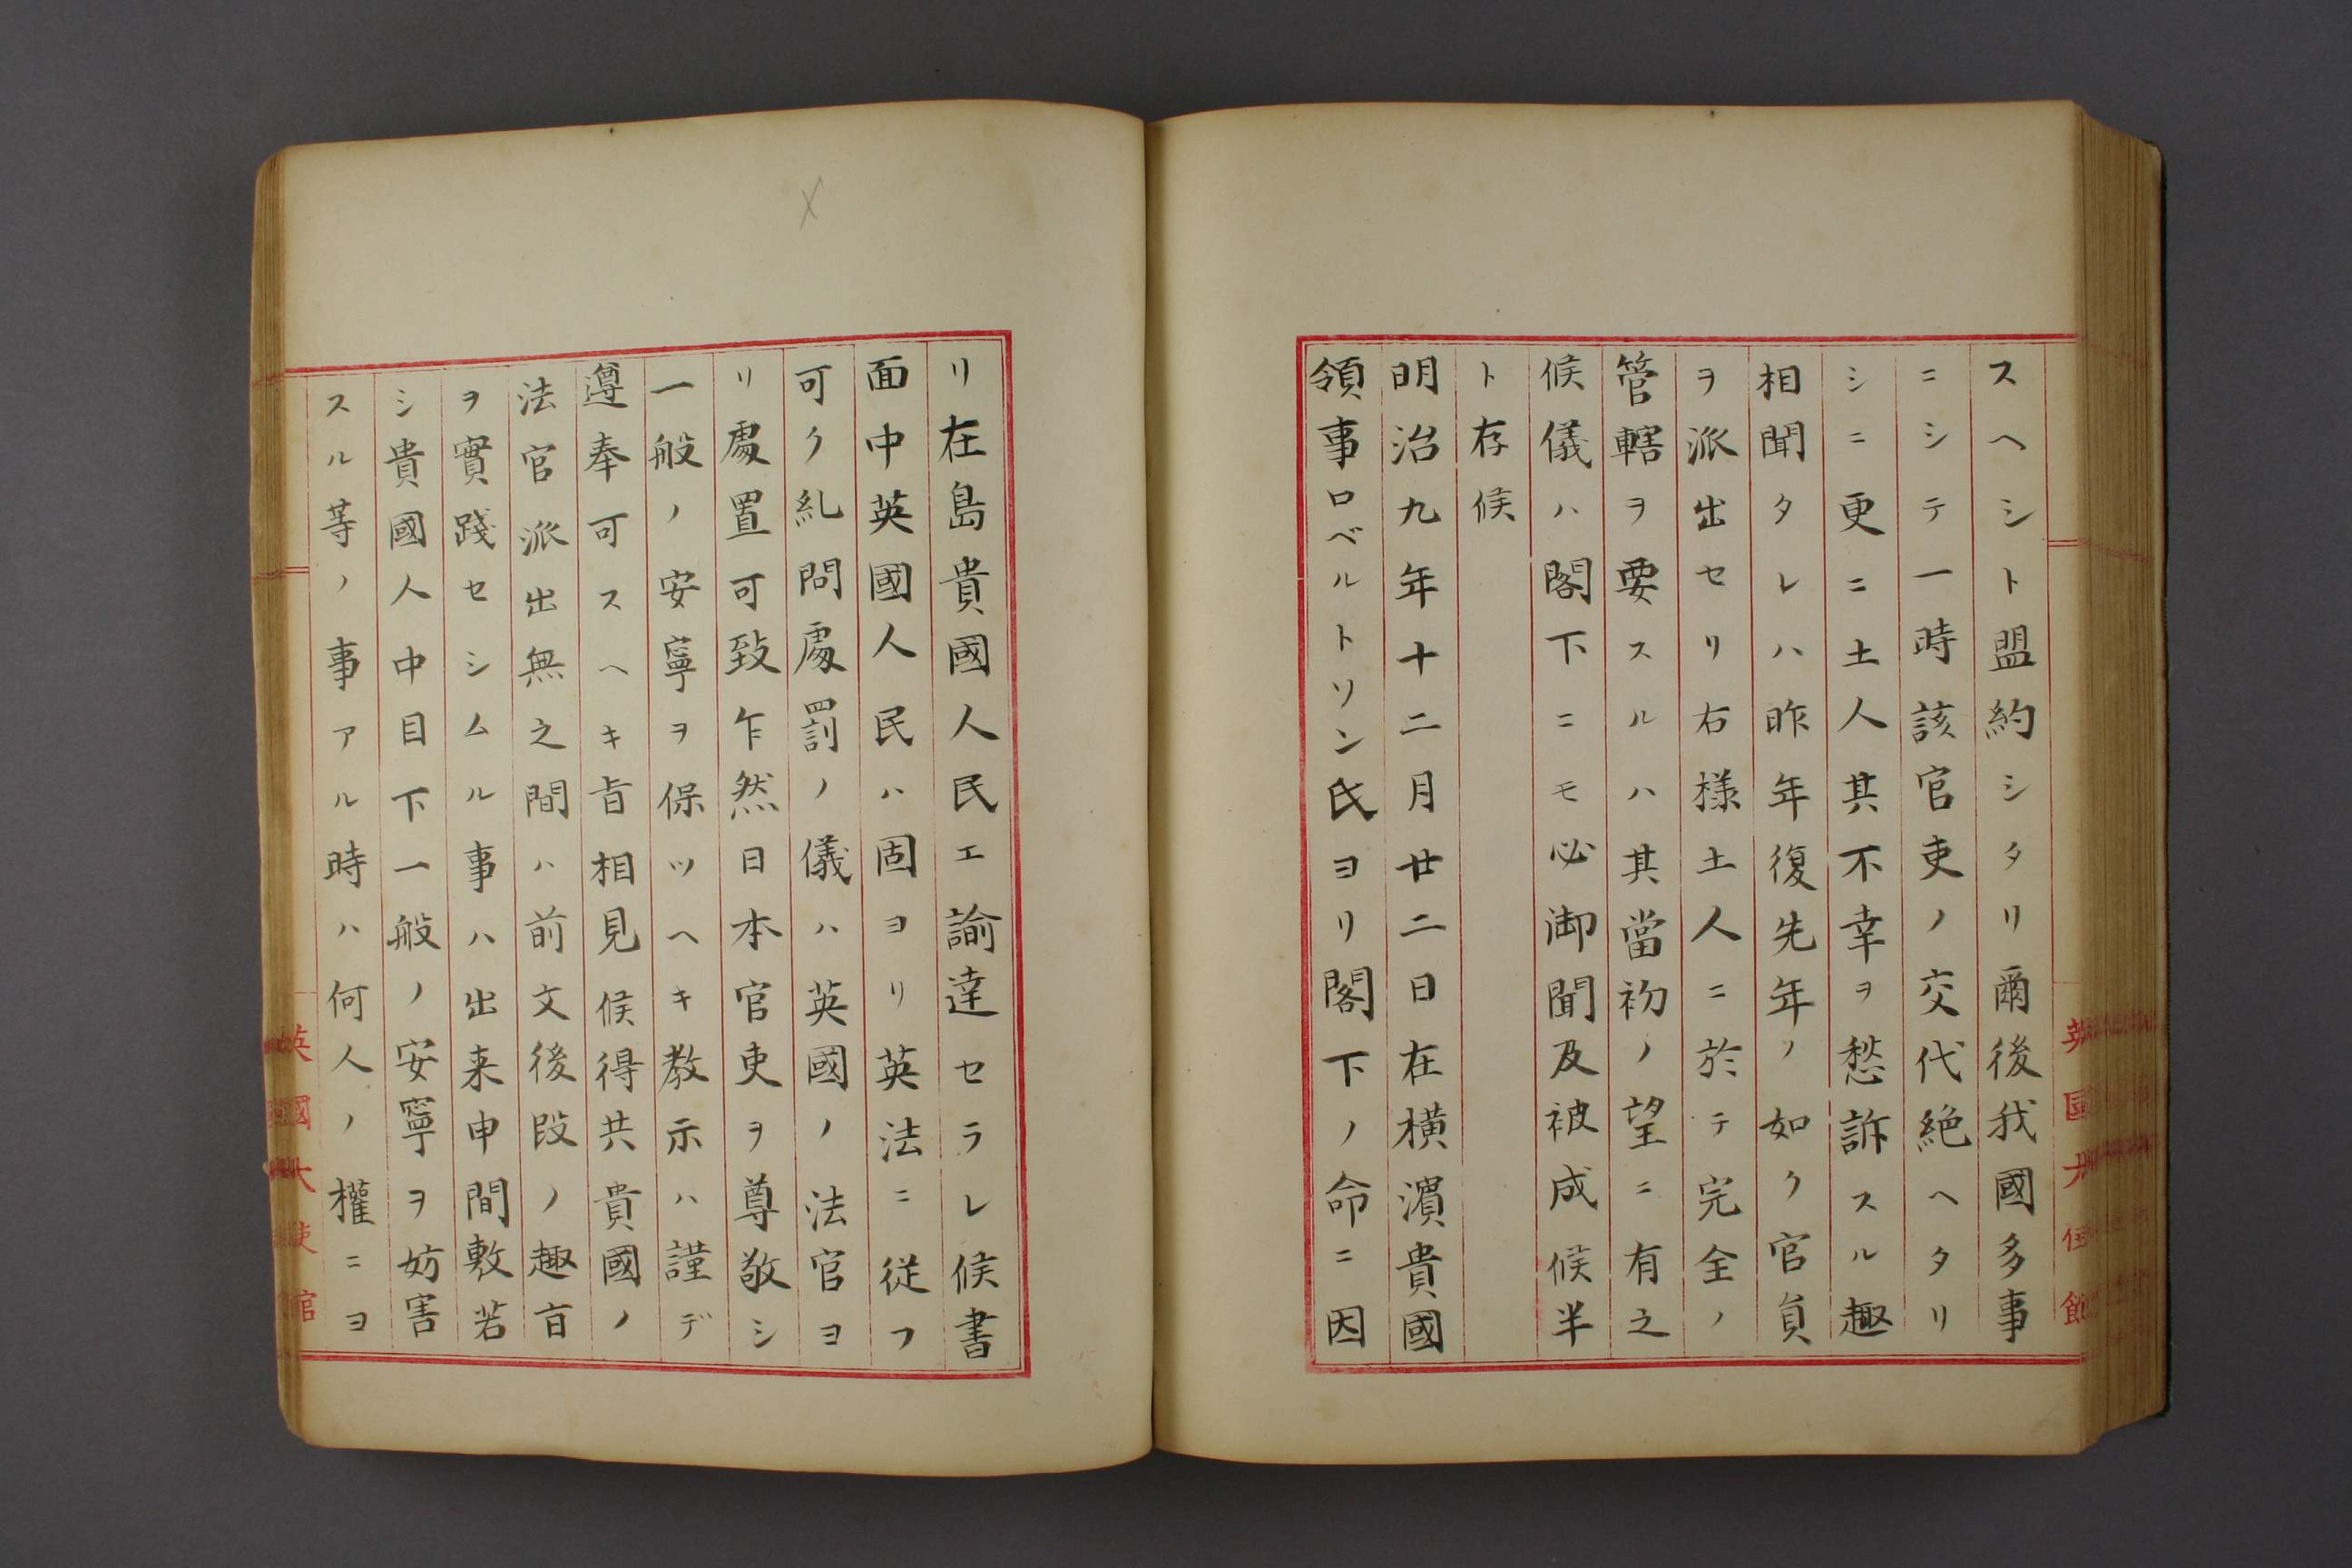 スヘシト盟約シタリ爾後我國多事
ニシテ一時該官吏ノ交代絶ヘタリ
シニ更ニ土人其不幸ヲ愁訴スル趣
相聞タレハ昨年復先年ノ如ク官員
ヲ派出セリ右様土人ニ於テ完全ノ
管轄ヲ要スルハ其當初ノ望ニ有之
候儀ハ閣下ニモ必御聞及被成候半
ト存候
明治九年十二月廿二日在横濱貴國
領事ロベルトソン氏ヨリ閣下ノ命ニ因
リ在島貴國人民エ諭達セラレ候書
面中英國人民ハ固ヨリ英法ニ従フ
可ク糺問處罰ノ儀ハ英國ノ法官ヨ
リ處置可致乍然日本官吏ヲ尊敬シ
一般ノ安寧ヲ保ツヘキ教示ハ謹デ
遵奉可スヘキ旨相見候得共貴國ノ
法官派出無之間ハ前文後段ノ趣旨
ヲ實踐セシムル事ハ出来申間敷若
シ貴國人中目下一般ノ安寧ヲ妨害
スル等ノ事アル時ハ何人ノ權ニヨ
英國大使館
英國大使館